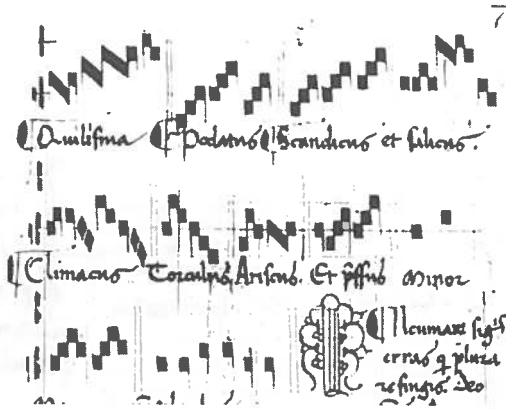 Quilisma Podatus Scandicus et salicus.
Climacus Torculus, Ariscus. Et p̄ssus minor
Neumare
erras q plura
refingis. Deo